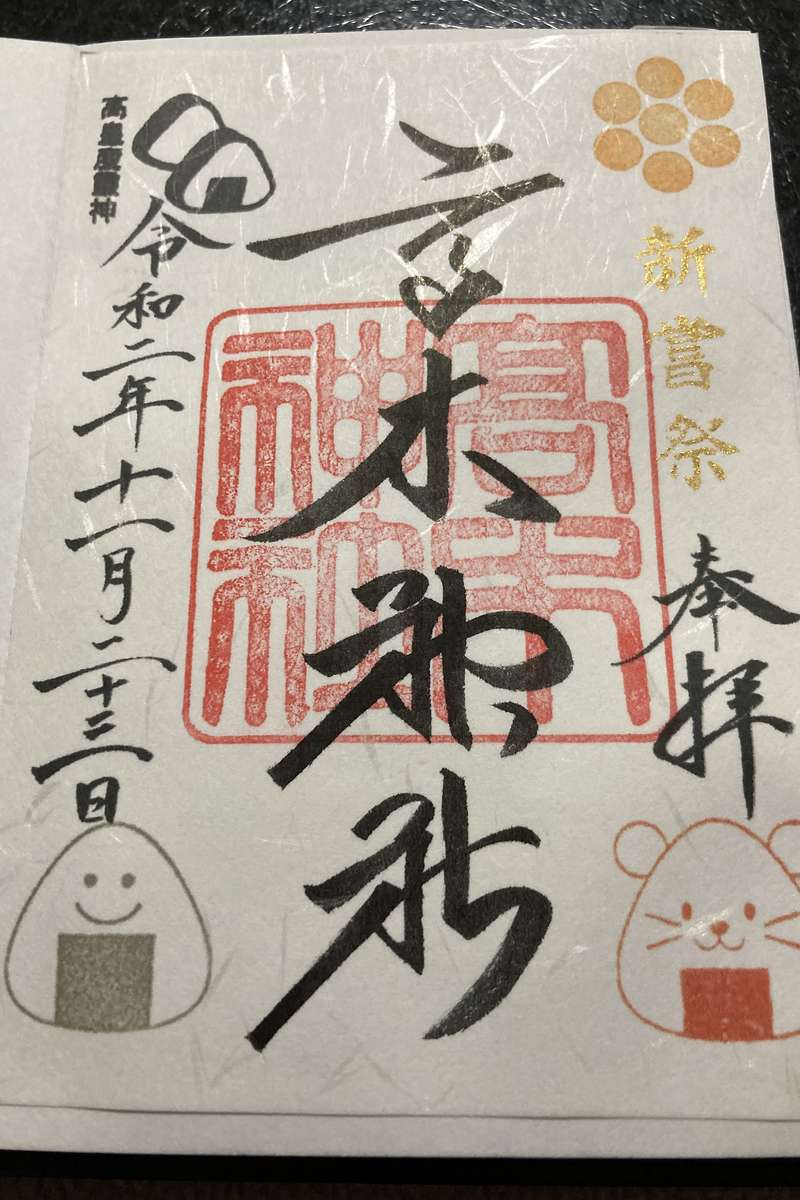 新嘗祭
奉拝
高木神社
高木
神社
高皇産靈神
令和二年十一月二十三日